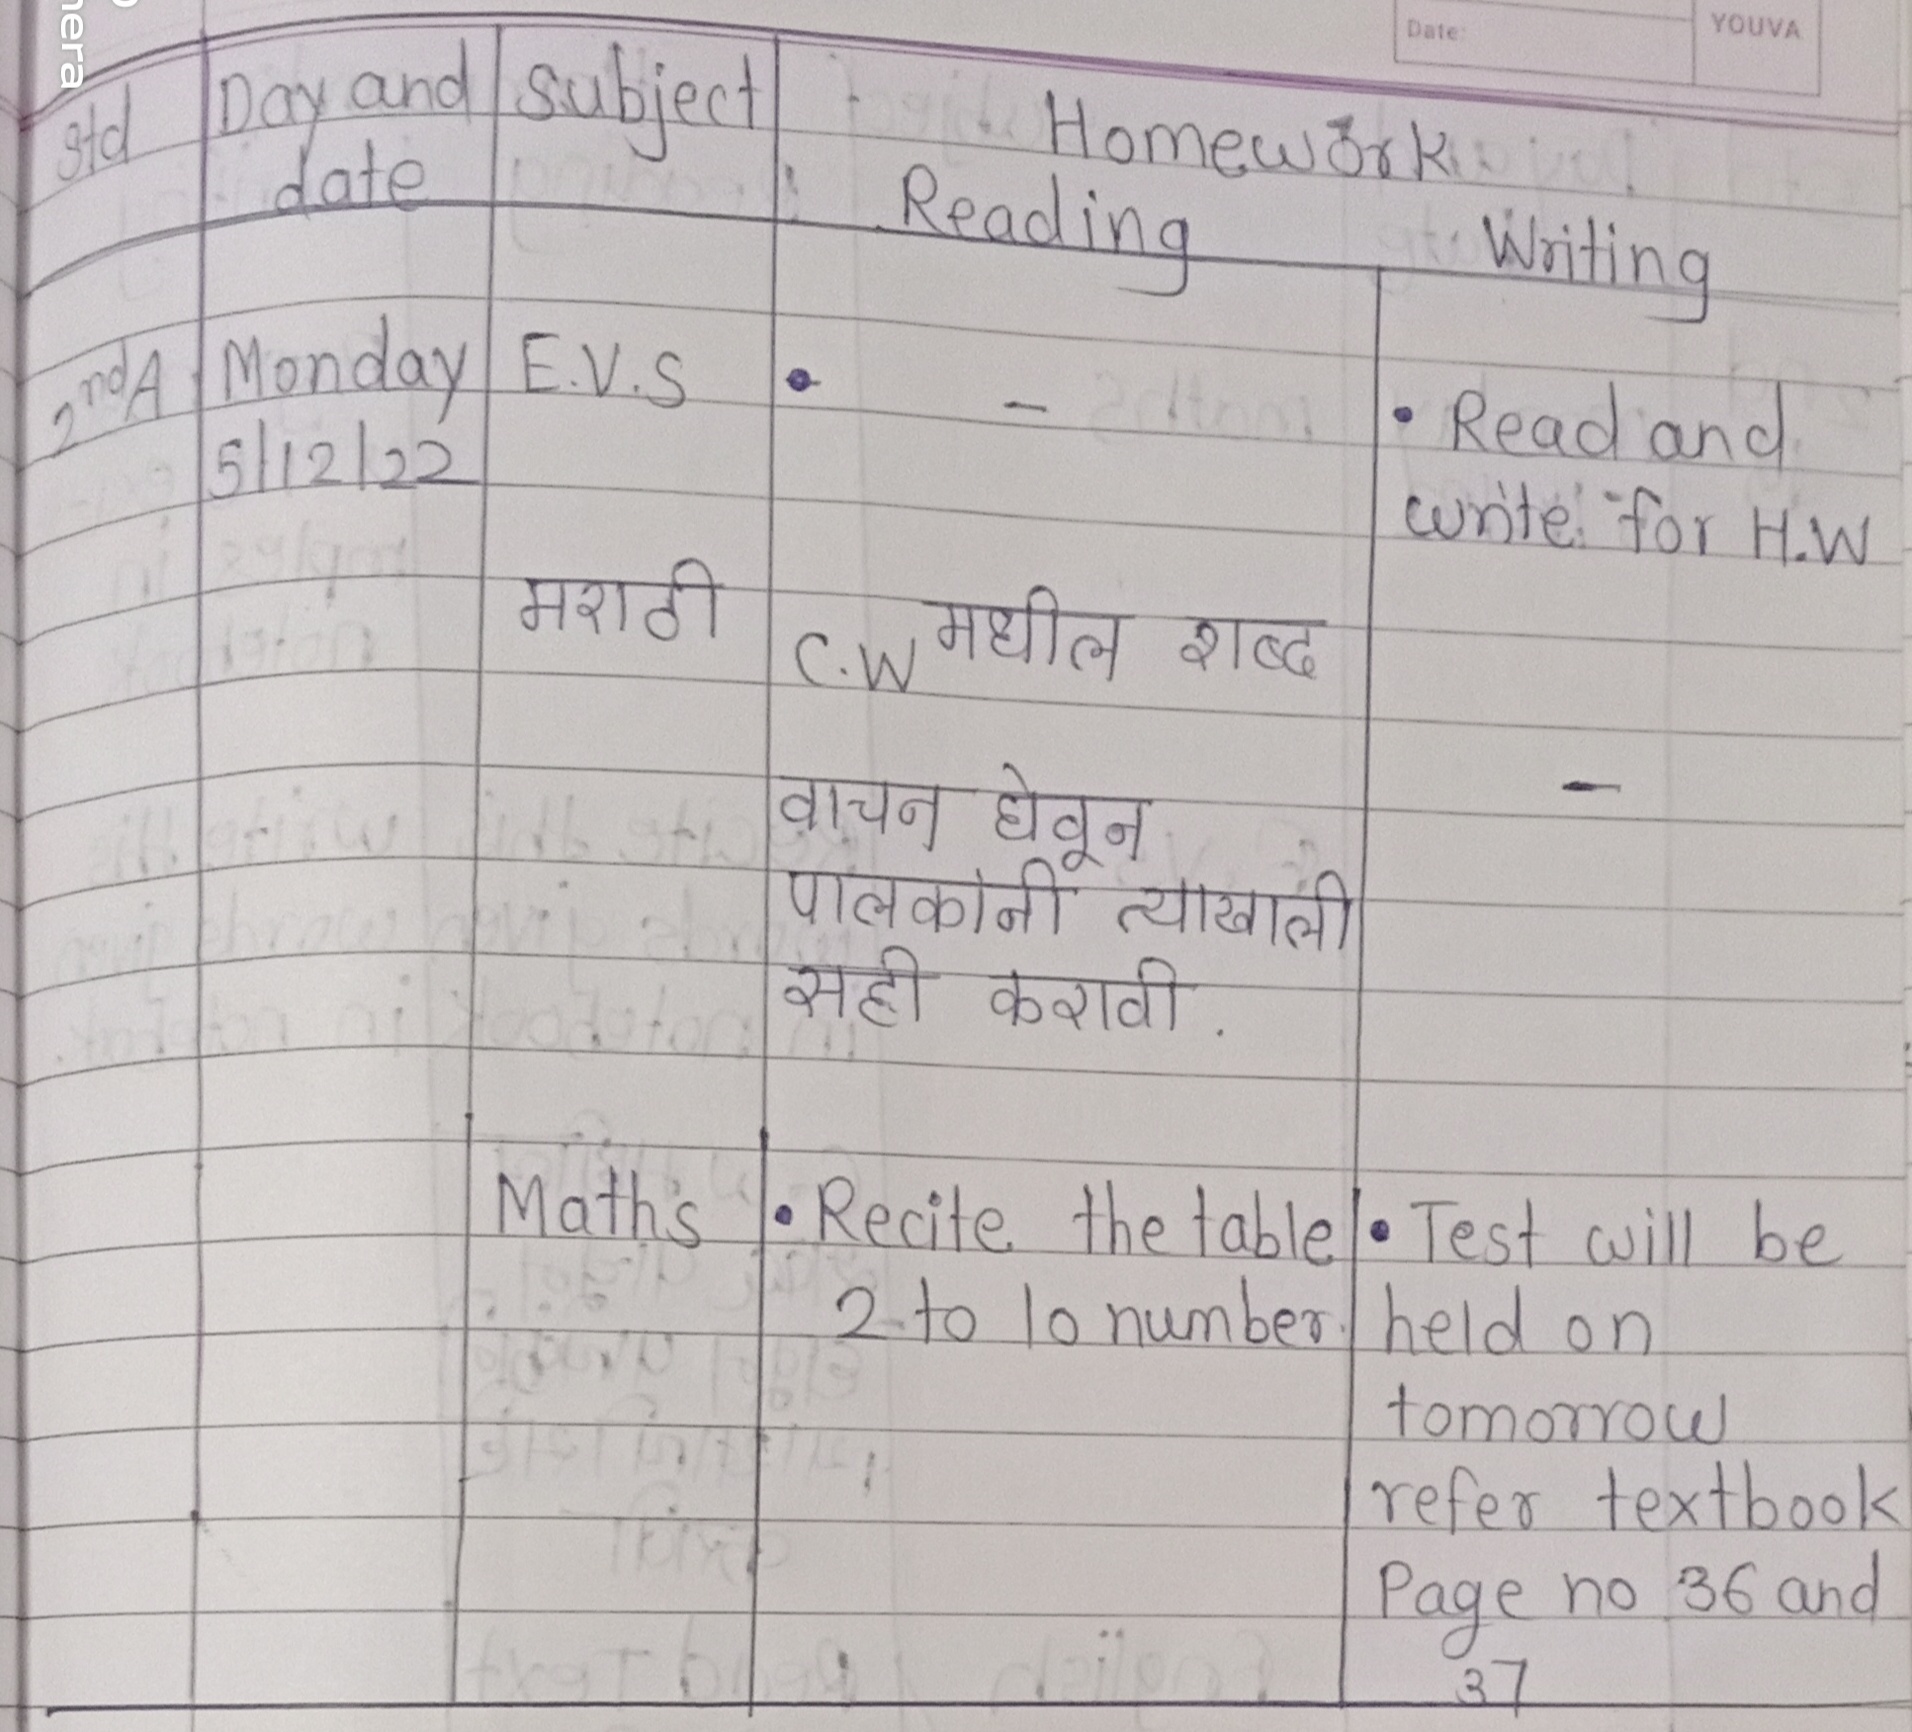 Date:
YOUVA
Std
Day and
date
Subject
Homework
Reading
Writing
2nd A
Monday
5/12/22
E.V.S
• –
• Read and
write for H.W
मराठी
C.W मधील शब्द
वाचन घेवून
पालकांनी त्याखाली
सही करावी.
–
Maths
• Recite the table
2 to 10 number.
• Test will be
held on
tomorrow
refer textbook
Page no 36 and
37